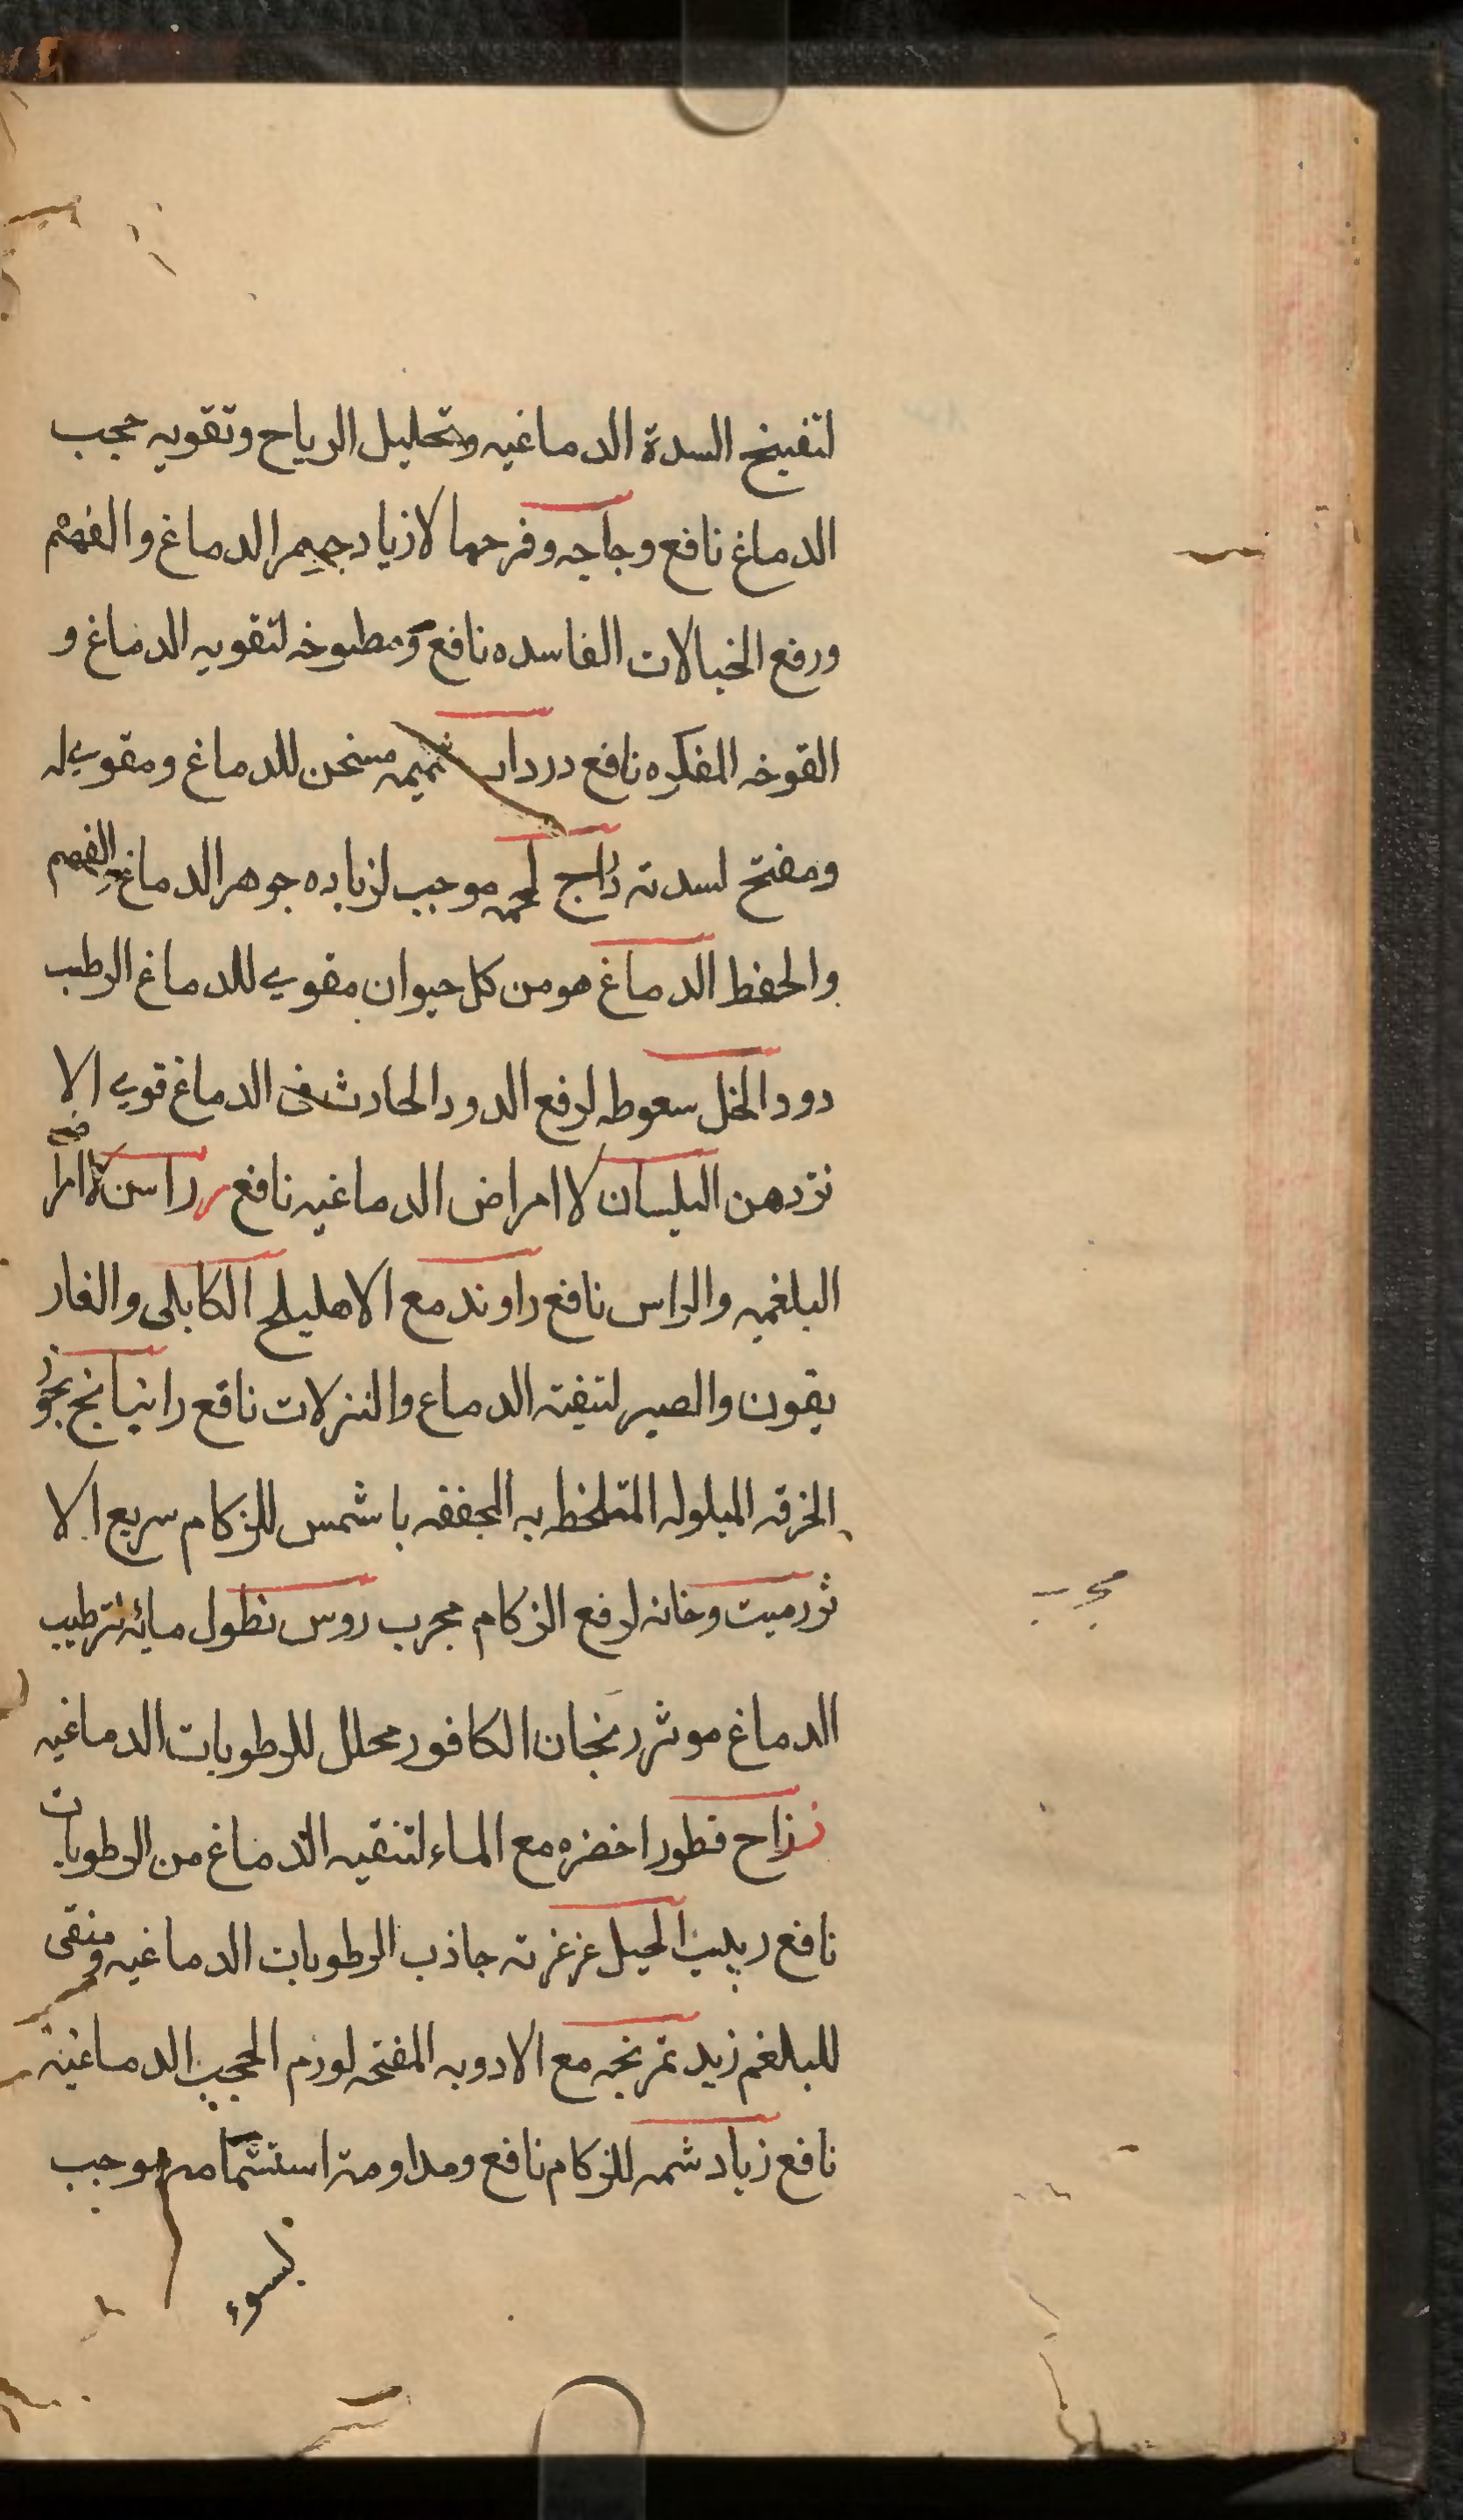 لتفتيح السدة الدماغيه وتحليل الرياح وتقويه حجب
الدماغ نافع وجاجه وفرحها لازياد جرم الدماغ والفهم
ورفع الخيالات الفاسده نافع ومطبوخه لتقويه الدماغ و
القوخه المفكره نافع دردار شميمه مسخن للدماغ ومقوي له
ومفتح لسدته دراج لحمه موجب لزياده جوهر الدماغ والفهم
والحفظ الدماغ هو من كل حيوان مقوي للدماغ الرطب
دود الخل سعوطه لرفع الدود الحادث فى الدماغ قوي الا
ثر دهن البلسان لا امراض الدماغيه نافع راسن لا امراض
البلغميه والراس نافع راوند مع الاهليلج الكابلى والغار
يقون والصبر لتنقيته الدماغ والنزلات نافع راتيانج بخور
الخرقه المبلوله المتلخط به المجففه باشمس للزكام سريع الا
ثر رميت وخانه لرفع الزكام مجرب روس نطول مائه لترطيب
مجرب
الدماغ موثر ريحان الكافور محلل للرطوبات الدماغيه
زراح قطور اخضره مع الماء لتنقيه الدماغ من الرطوبات
نافع زبيب الجبل غرغرته جاذب الرطوبات الدماغيه ومنقى
للبلغم زبد تمريخه مع الادويه المفتحه لورم الحجب الدماغية
نافع زباد شمه للزكام نافع ومداومة استشمامه موجب
لسوء